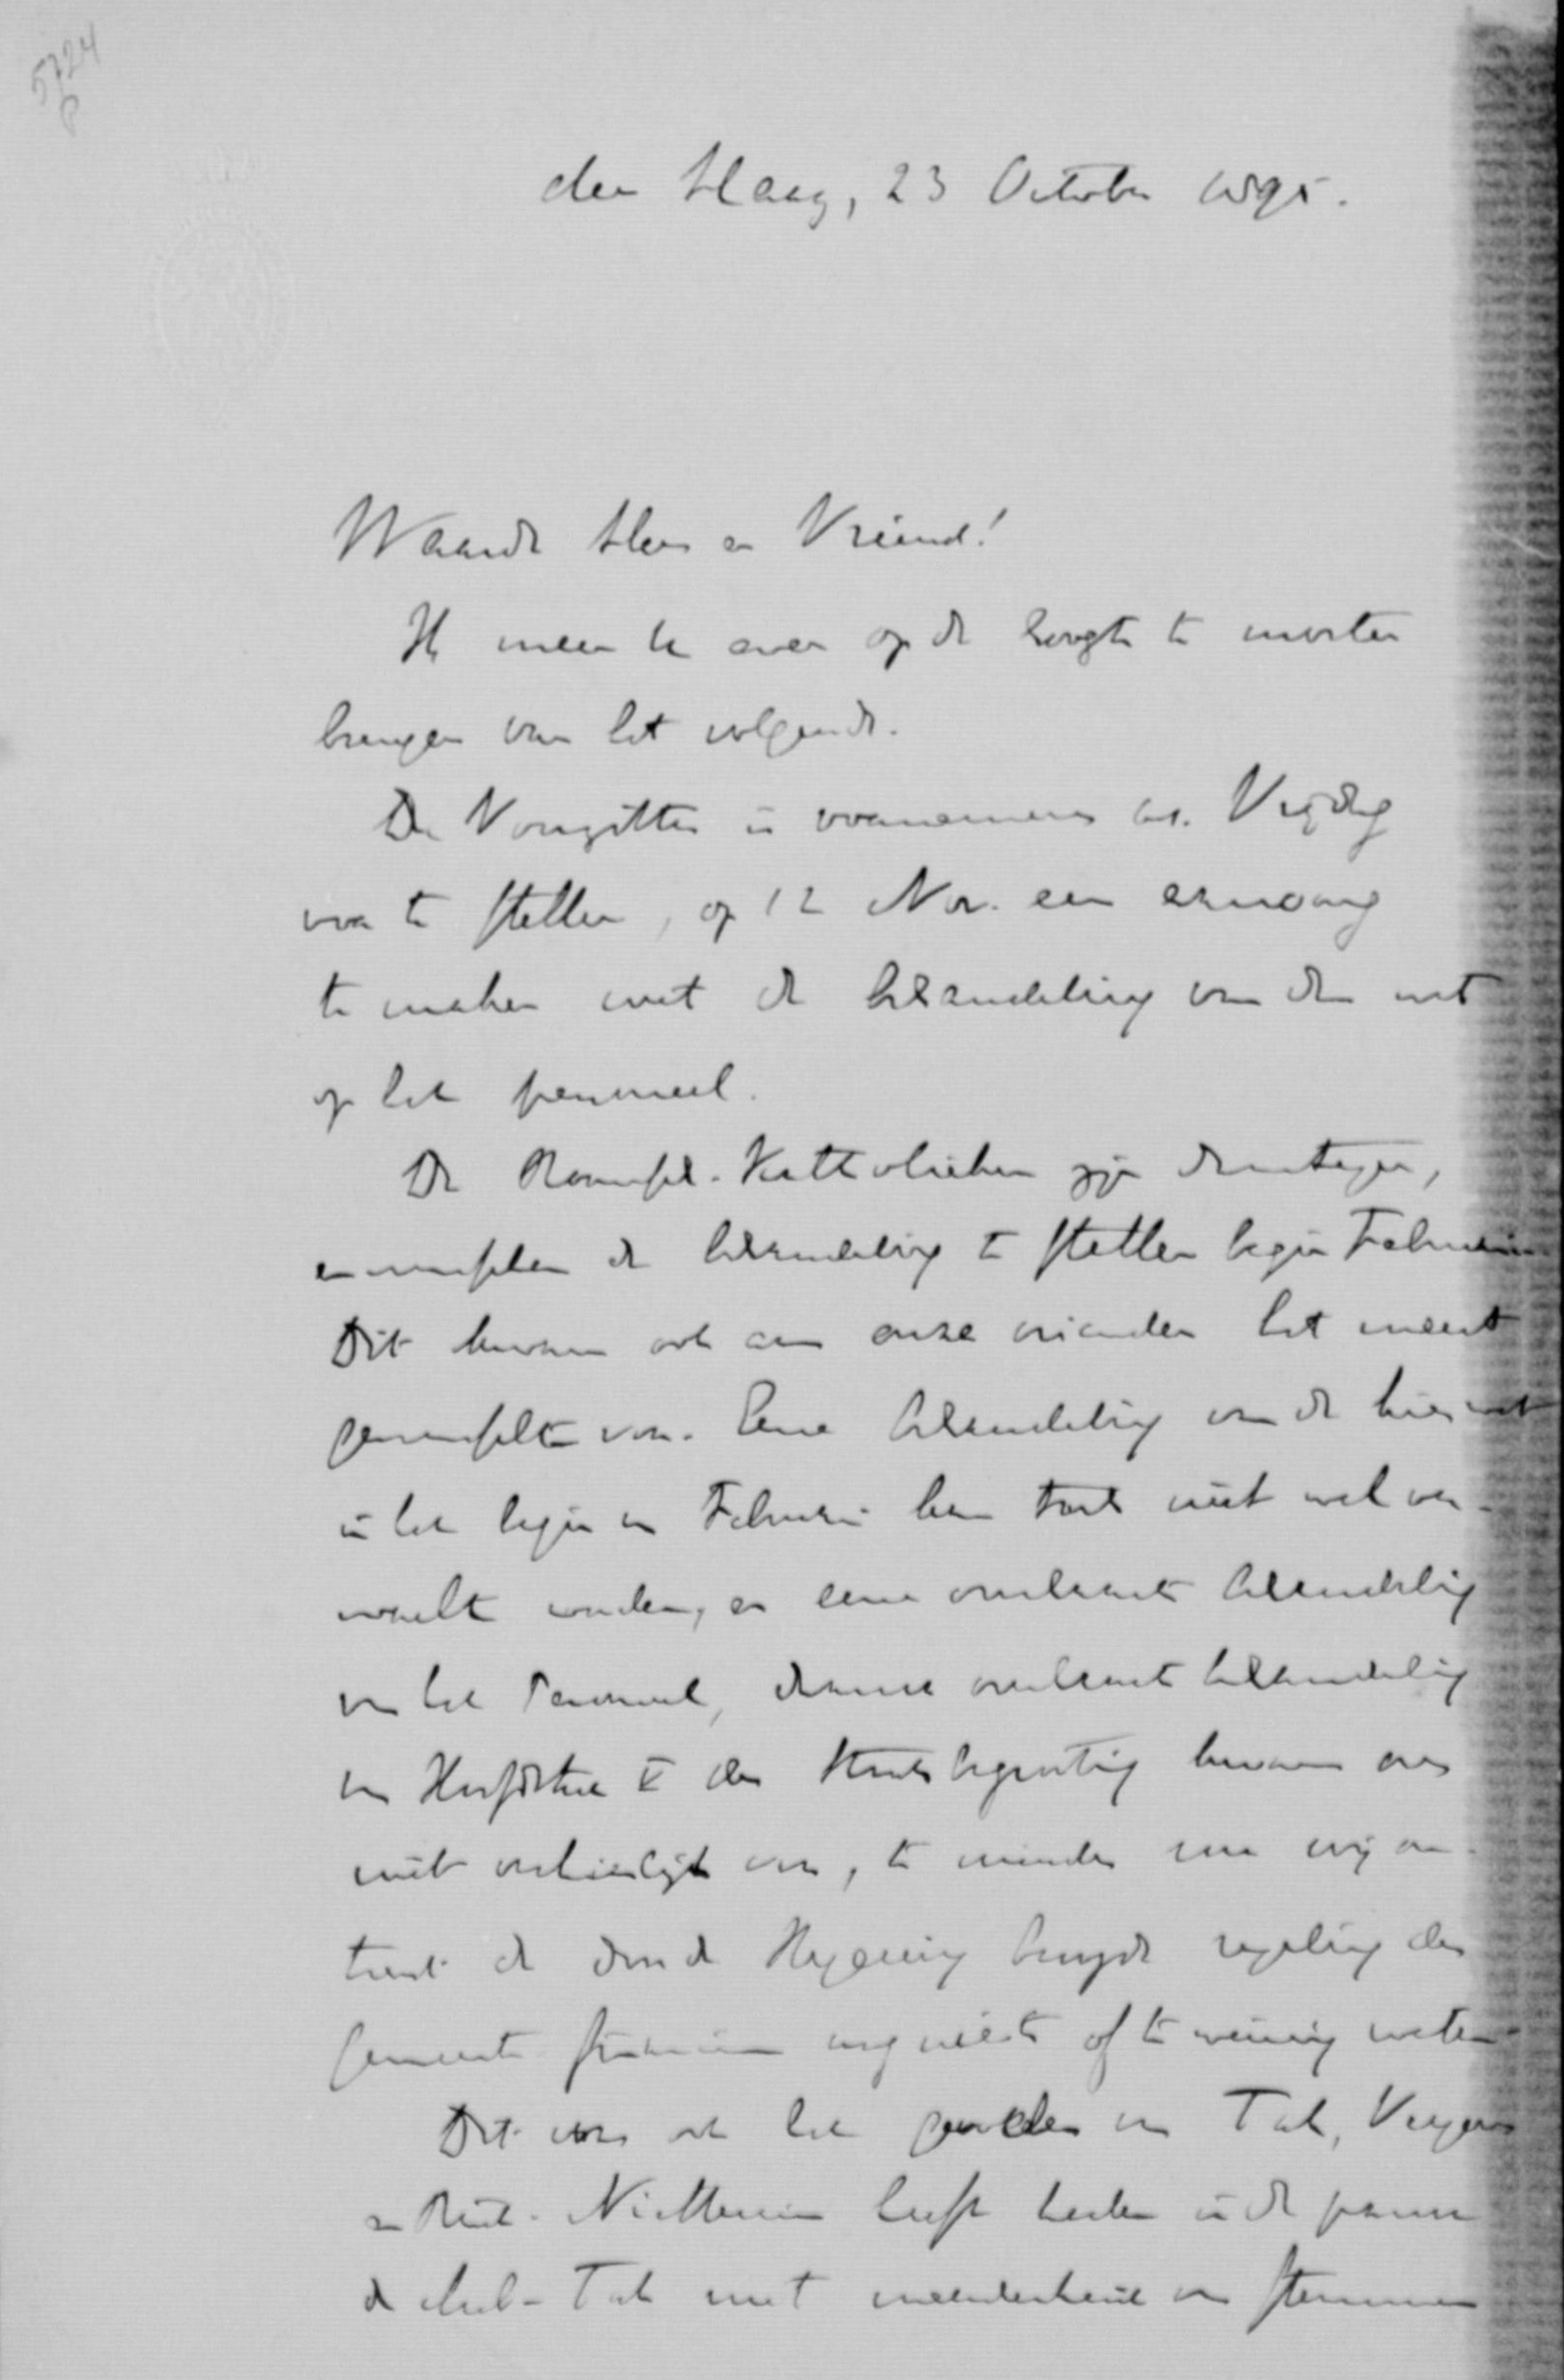 5724
den Haag, 23 October 1895.
Waarde Heer en Vriend!
Ik meen U even op de hoogte te moeten
brengen van het volgende.
De Voorzitter is voornemens a.s. Vrijdag
voor te stellen, op 12 Nov. een aanvang
te maken met de behandeling van de wet
op het personeel.
De Roomsch-Katholieken zijn daartegen,
en wenschen de behandeling te stellen begin Februari
Dit kwam ook aan onze vrienden het meest
gewenscht voor. Eene behandeling van de kieswet
in het begin van Februari kan toch niet wel ver-
wacht worden, en eene behandeling
van het Personeel, behandeling
van Hoofdstuk V der Staatsbegrooting kwam ons
niet voor, te minder waar wij om-
trent de door de Regeering beoogde regeling der
Gemeente financiën nog niets of te weinig weten.
Dit was ook het gevoelen van Tak,
en Rink. Niettemin heeft heden in de
de club-Tak met meerderheid van stemmen